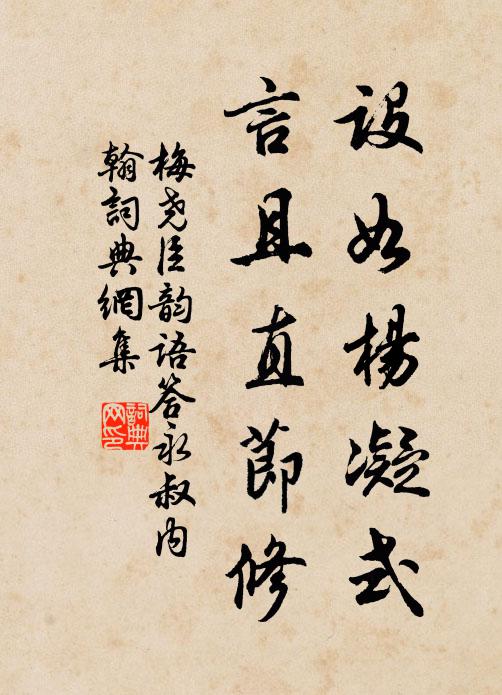 设如楊凝式
言且直節修
梅尧臣韵語答永叔内
翰詞典網集
詞典网印